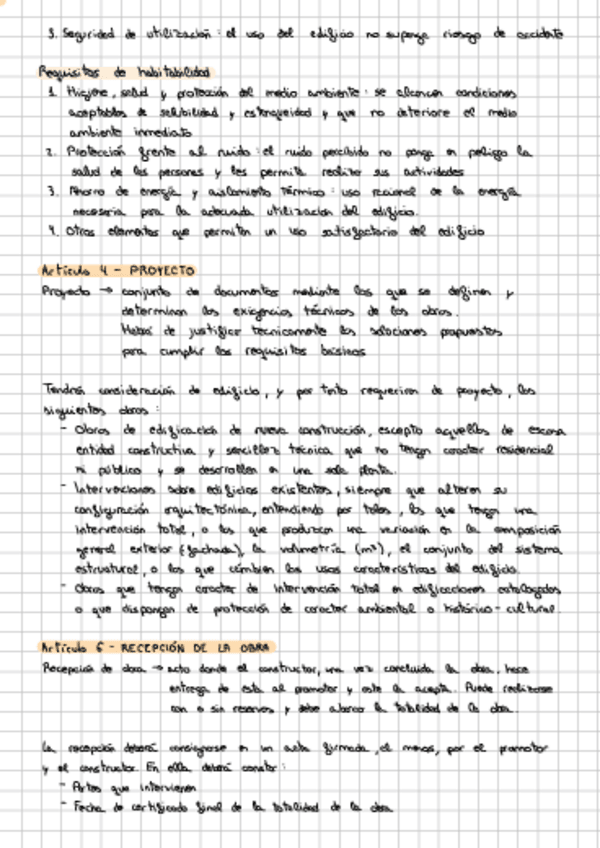 3. Seguridad de utilización: el uso del edificio no suponga riesgo de accidente
Requisitos de habitabilidad
1. Higiene, salud y protección del medio ambiente: se alcancen condiciones
aceptables de salubridad y estanqueidad y que no deteriore el medio
ambiente inmediato
2. Protección frente al ruido: el ruido percibido no ponga en peligro la
salud de las personas y les permita realizar sus actividades
3. Ahorro de energía y aislamiento térmico: uso racional de la energía
necesaria para la adecuada utilización del edificio.
4. Otros elementos que permitan un uso satisfactorio del edificio
Artículo 4 - PROYECTO
Proyecto → conjunto de documentos mediante los que se definen y
determinan las exigencias técnicas de las obras.
Habrá de justificar tecnicamente las soluciones propuestas
para cumplir los requisitos básicos
Tendrán consideración de edificio, y por tanto requerirán de proyecto, las
siguientes obras:
- Obras de edificación de nueva construcción, escepto aquellas de escasa
entidad constructiva y sencillez técnica que no tengan caracter residencial
ni público y se desarrollen en una sola planta.
- Intervenciones sobre edificios existentes, siempre que alteren su
configuración arquitectónica, entendiendo por tales, las que tengan una
intervención total, o las que produzcan una variación en la composición
general exterior (fachada), la volumetría (m³), el conjunto del sistema
estructural, o las que cambien los usos característicos del edificio.
- Obras que tengan caracter de intervención total en edificaciones catalogadas
o que dispongan de protección de caracter ambiental o histórico-cultural.
Artículo 6 - RECEPCIÓN DE LA OBRA
Recepción de obra → acto donde el constructor, una vez concluida la obra, hace
entrega de esta al promotor y este la acepta. Puede realizarse
con o sin reservas y debe abarcar la totalidad de la obra.
La recepción deberá consignarse en un acta firmada, al menos, por el promotor
y el constructor. En ella deberá constar:
- Partes que intervienen
- Fecha de certificado final de la totalidad de la obra